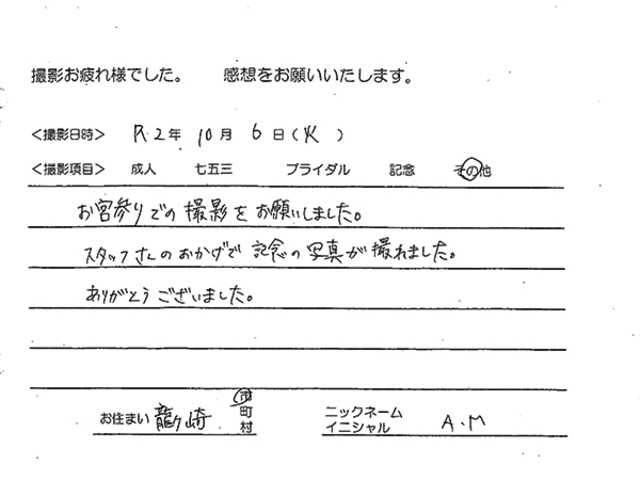 撮影お疲れ様でした。 感想をお願いいたします。
＜撮影日時＞ R.2年 10月 6日(火)
＜撮影項目＞ 成人 七五三 ブライダル 記念 その他
お宮参りでの撮影をお願いしました。
スタッフさんのおかげで記念の写真が撮れました。
ありがとうございました。
お住まい 龍ヶ崎 市町村 ニックネーム イニシャル A.M